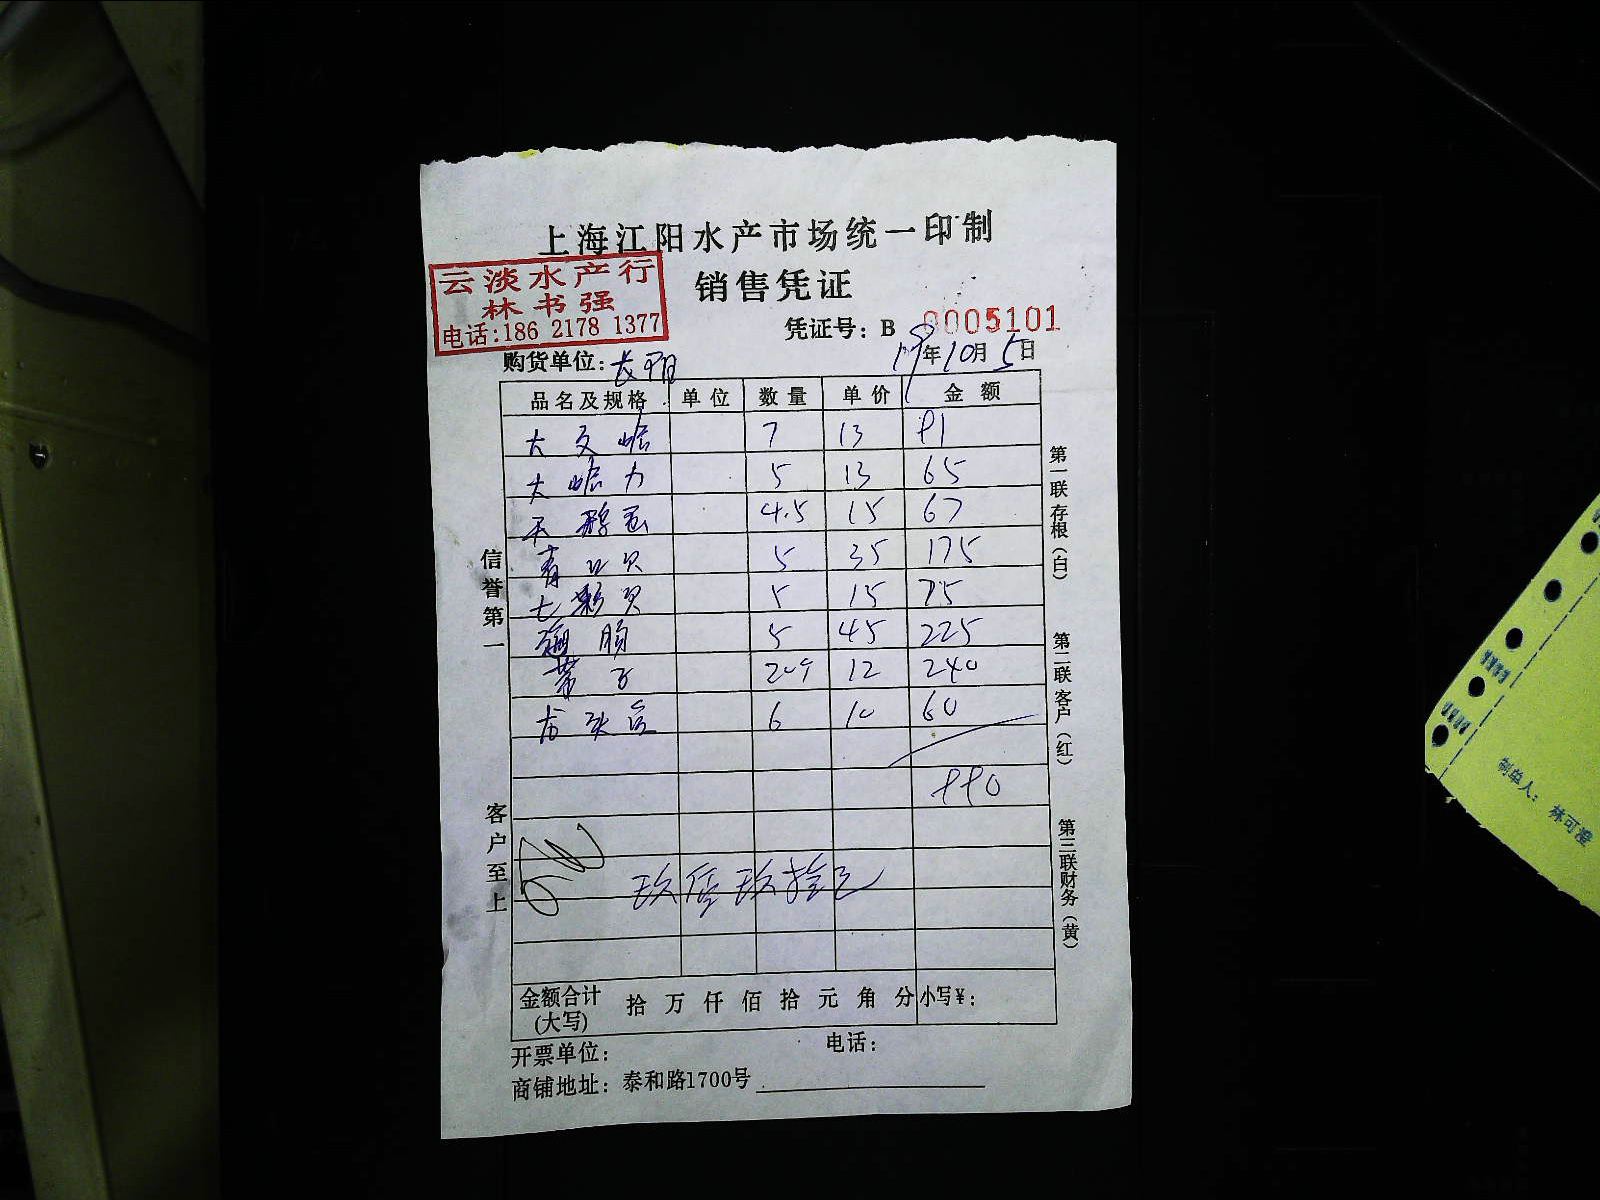 上海江阳水产市场统一印制
销售凭证
云淡水产行
林书强
电话:186 2178 1377
凭证号: B 0005101
购货单位: 长阳
19年10月5日
品名及规格 单位 数量 单价 金额
大文蛤 7 13 91
大蛤力 5 13 65
天鹅蛋 4.5 15 67
青口贝 5 35 175
七彩贝 5 15 75
翅胸 5 45 225
带子 20个 12 240
龙头 6 10 60
990
玖佰玖拾元
金额合计(大写) 拾 万 仟 佰 拾 元 角 分 小写¥:
开票单位: 电话:
商铺地址: 泰和路1700号
信誉第一
客户至上
第一联存根(白)
第二联客户(红)
第三联财务(黄)
制单人: 林可澄